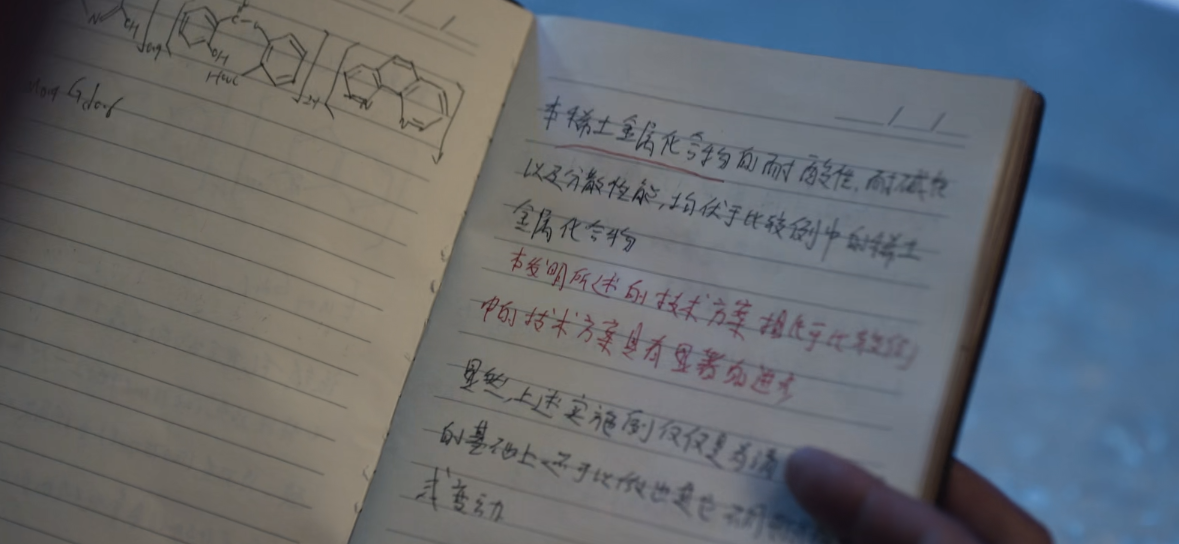 OH
OH
N
N
N
本稀土金属化合物的耐酸性,耐碱性
以及分散性能,均优于比较例中的稀土
金属化合物
本发明所述的技术方案相比于比较例
中的技术方案具有显著的进步
显然,上述实施例仅仅是为清
的基础上还可以做出其它不同
或变动